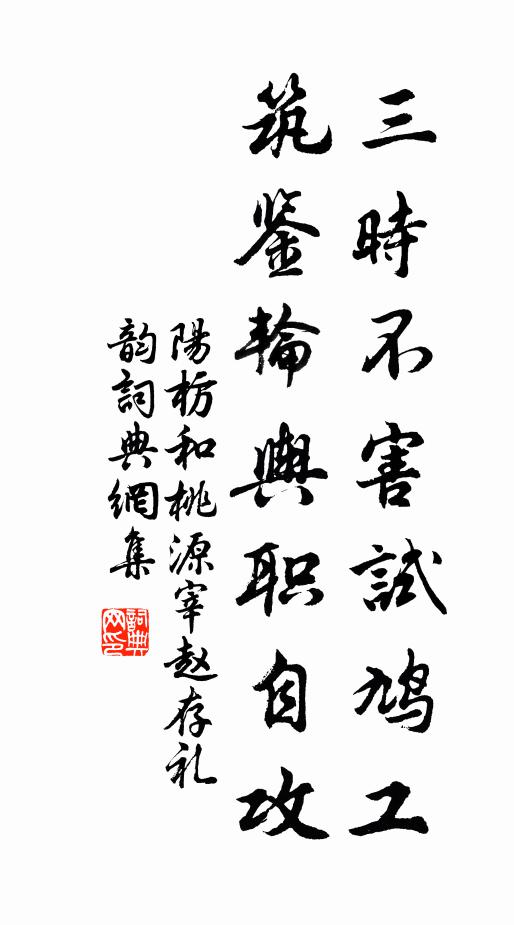 三時不害試鳩工
筑鉴輪輿职自攻
陽枋和桃源宰赵存礼
韵詞典網集
詞典
网印